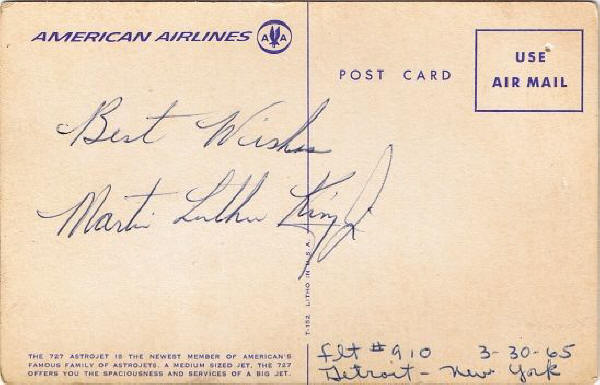 AMERICAN AIRLINES AA
POST CARD
USE
AIR MAIL
Best Wishes
Martin Luther King Jr
T-152 LITHO IN U.S.A.
THE 727 ASTROJET IS THE NEWEST MEMBER OF AMERICAN'S
FAMOUS FAMILY OF ASTROJETS. A MEDIUM SIZED JET, THE 727
OFFERS YOU THE SPACIOUSNESS AND SERVICES OF A BIG JET.
Flt #910 3-30-65
Detroit - New York